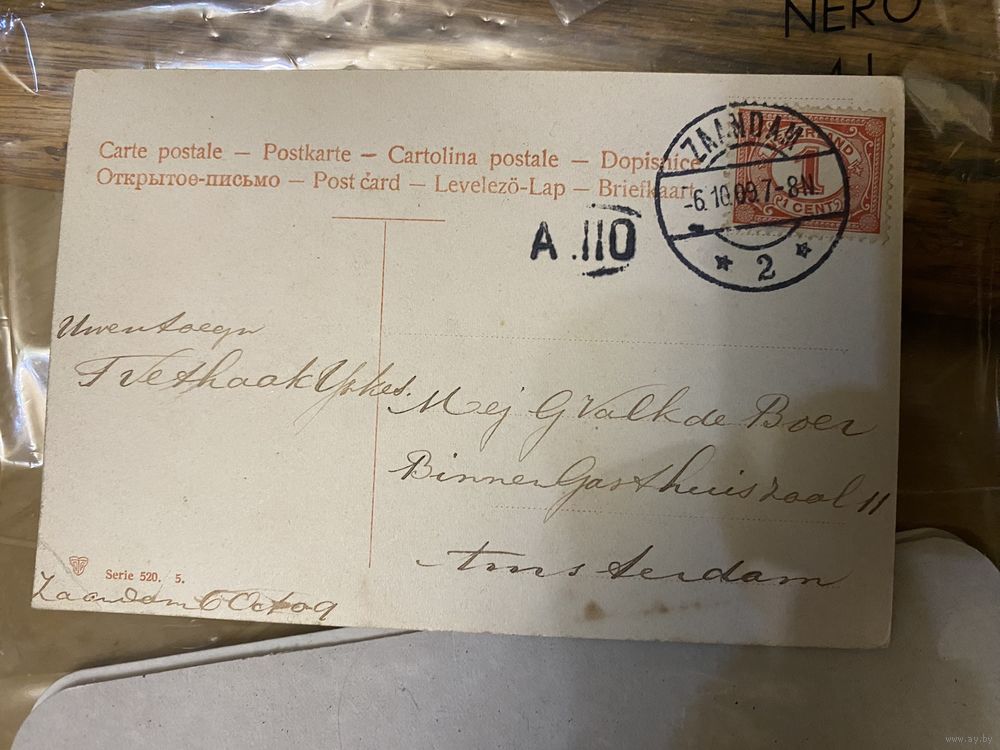 NERO
Carte postale — Postkarte — Cartolina postale — Dopisnice
Открытое-письмо — Post card — Levelező-Lap — Briefkaart
ZAANDAM
-6.10.09.7-8N
2
NEDERLAND
1
1 CENT
A.110
T Vethaak Ypkes.
Mej G Valk de Boer
Binnen Gasthuis zaal 11
Amsterdam
Serie 520. 5.
Zaandam 6 Oct 09
www.ay.by